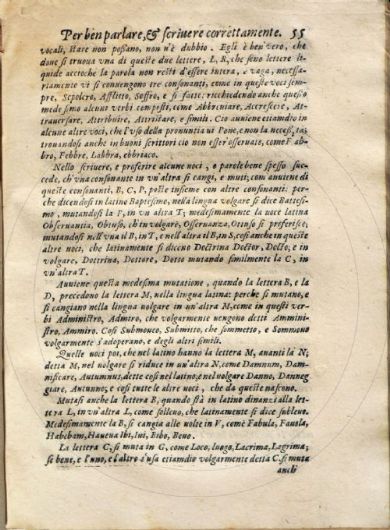 Per ben parlare, & scriuere correttamente. 55
vocali, stare non possano, non n'è dubbio. Egli è ben vero, che
doue si truoua vna di queste due lettere, L, R, che sono lettere li-
quide accioche la parola non resti d'essere intera, e vaga, necessa-
riamente vi si conuengono tre consonanti, come in queste voci sem-
pre, Sepolcro, Afflitto, Soffro, e sì fatte, richiedendo anche questo
medesimo alcuni verbi composti, come Abbreuiare, Accrescere, At-
trauersare, Attribuire, Attristare, e simili. Ciò auuiene etiamdio in
alcune altre voci, che l'vso della pronuntia vi Pone, e non la necess. tà;
trouandosi anche in buoni scrittori ciò non esser osseruato, come Fab-
bro, Febbre, Labbra, ebbriaco.
Nello scriuere, e proferire alcune noci, o parole bene spesso suc-
cede, ch'vna consonante in vn'altra si cangi, e muti; com auuiene di
queste consonanti, B, C, P, poste insieme con altre consonanti: per-
che dicendosi in latino Baptesimo, nella lingua volgare si dice Battesi-
mo, mutandosi la P, in vn altra T; medesimamente la uoce latina
Obseruantia, Obtuso, ch'in volgare, Osseruanza, Ottuso si proferisce,
mutandosi nell'vna il B, in T, e nell'altra il B, in S, così anche in queste
altre noci, che latinamente si diceno Doctrina Doctor, Docto, e in
volgare, Dottrina, Dottore, Dotto mutando similmente la C, in
vn'altra T.
Auuiene questa medesima mutatione, quando la lettera B, e la
D, precedono la lettera M, nella lingua latina: perche si mutano, e
si cangiano nella lingua nolgare in vn'altra M, come in questi ver-
bi Administro, Admiro, che volgarmente uengono detti Ammini-
stro, Ammiro. Così Submoueo, Submitto, che sommetto, e Sommouo
volgarmente s'adoperano, e degli altri simili.
Quelle noci poi, che nel latino hanno la lettera M, auanti la N;
detta M, nel nolgare si riduce in vn'altra N, come Damnum, Dam-
nificare, Autumnus, dette così nel latino; e nel volgare Danno, Danneg-
giare, Autunno, e così tutte le altre noci, che da queste nascono.
Mutasi anche la lettera B, quando stà in latino dinanzi alla let-
tera L, in vn'altra L, come solleuo, che latinamente si dice subleuo.
Medesimamente la B, si cangia alle nolte in V, come Fabula, Fauola,
Habebam, Haueua Ibi, iui, Bibo, Beuo.
La lettera C, si muta in G, come Loco, luogo, Lacrima, Lagrima;
se bene, e l'uno, e l'altro s'usa etiamdio volgarmente detta C, si muta
anch